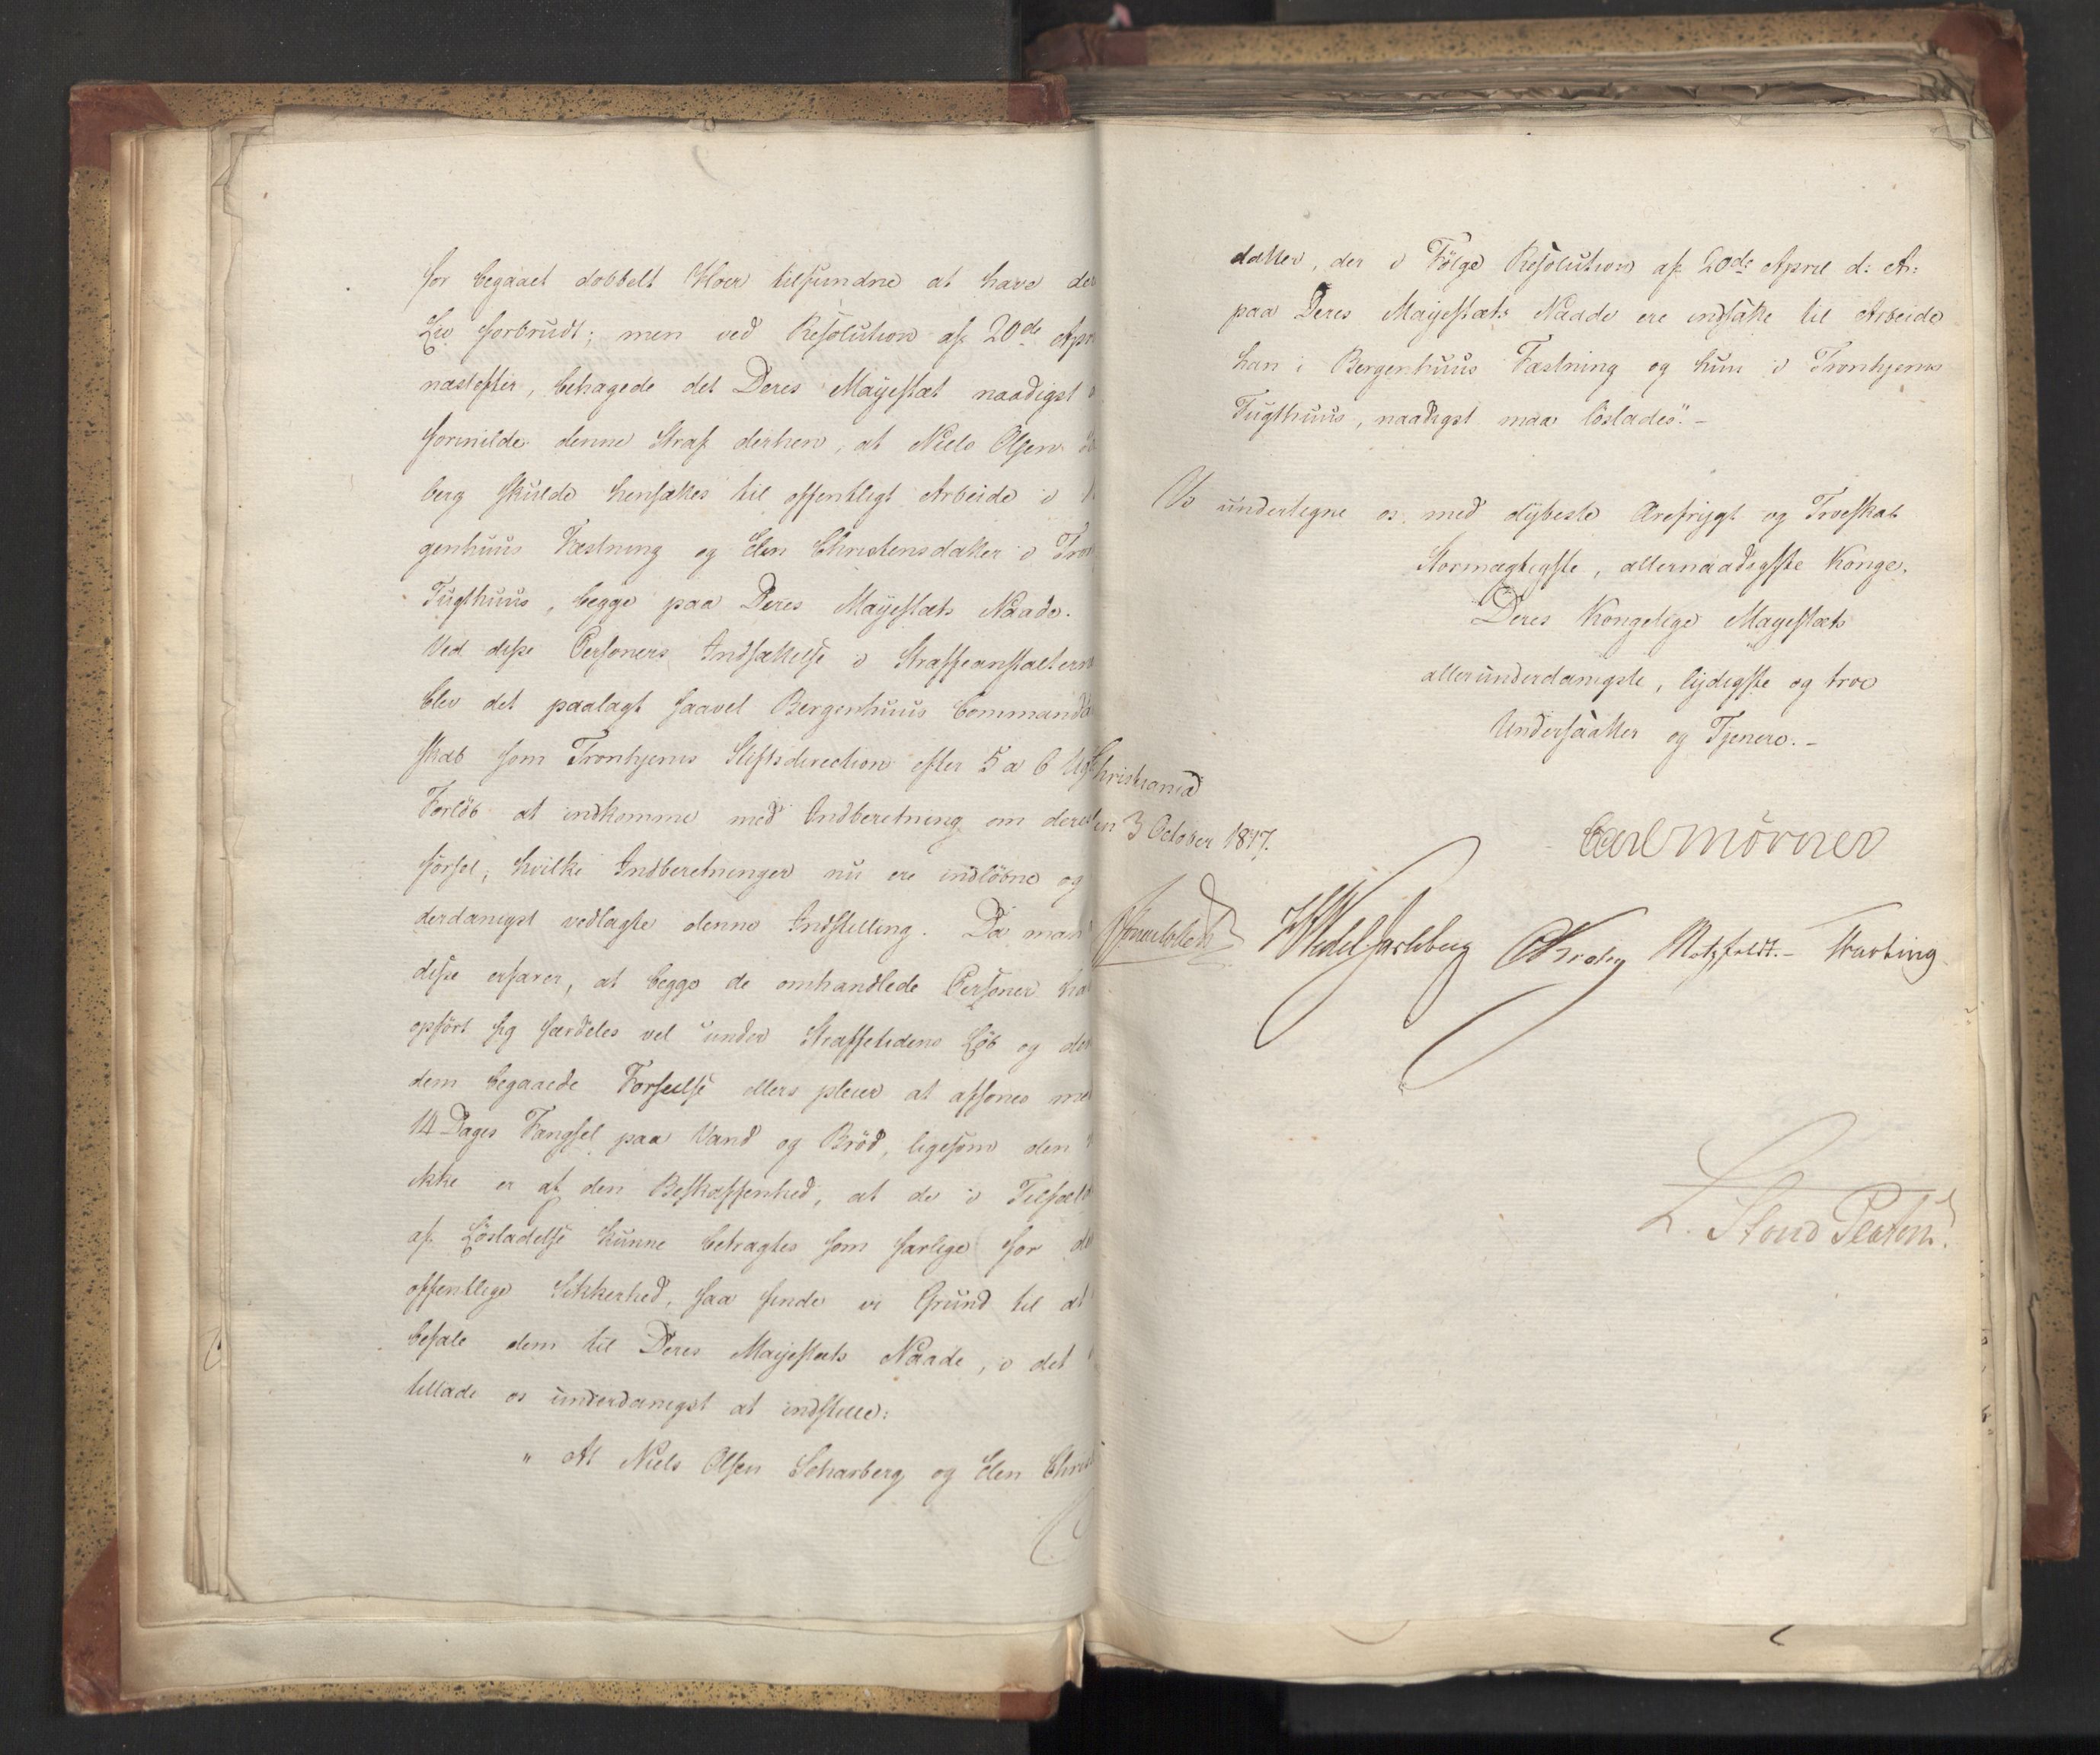 for begaaet dobbelt Hoer tilfundne at have de
Liv forbrudt; men ved Resolution af 20de Apr
næstefter, behagede det Deres Mayestæt naadigst
formilde denne Straf derhen, at Niels Olsen
berg skulde hensættes til offentligt Arbeide i
genhuus Fæstning og Elen Christensdatter i Tron
Tugthuus, begge paa Deres Mayestæts Naade.
Ved disse Personers Indsættelse i Straffeanstaltern
blev det paalagt saavel Bergenhuus Commanda
skab som Tronhjems Stiftsdirection efter 5 a 6 Ug
Forløb at indkomme med Indberetning om deres
førsel, hvilke Indberetninger nu ere indløbne og
derdanigst vedlagte denne Indstilling. Da man
disse erfarer, at begge de omhandlede Personer ha
opført sig særdeles vel under Straffetidens Løb og de
dem begaaede Forseelse ellers pleier at afsones me
14 Dages Fængsel paa Vand og Brød, ligesom den
ikke er af den Beskaffenhed, at de i Tilfælde
af Løsladelse kunne betragtes som farlige for de
offentlige Sikkerhed, saa finde vi Grund til at
befale dem til Deres Mayestæts Naade, i det
tillade os underdanigst at indstille:
" At Niels Olsen Scharberg og Elen Christ
datter, der i Følge Resolution af 20de April d: A:
paa Deres Mayestæts Naade ere indsatte til Arbeide
han i Bergenhuus Fæstning og hun i Tronhjems
Tugthuus, naadigst maa løslades". -
Vi undertegne os med dybeste Ærefrygt og Troeskab
Stormægtigste, allernaadigste Konge,
Deres Kongelige Mayestæts
allerunderdanigste, lydigste og troe
Undersaatter og Tjenere. -
Christiania
den 3 October 1817.
Carl Mörner
Sommerhielm HWedel Jarlsberg CKrohg Motzfeldt. - Fasting
L. Stoud Platou.